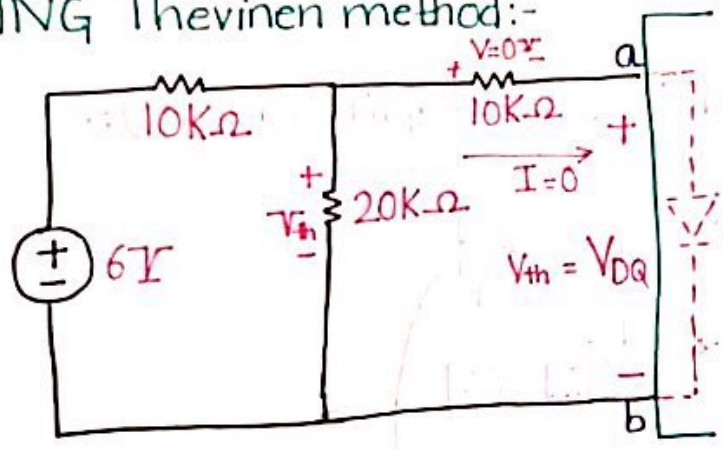 ING Thevinen method:-
V=0V
+
a
10KΩ
10KΩ
+
I=0
+
Vth
-
20KΩ
+
-
6V
Vth = VDQ
-
b